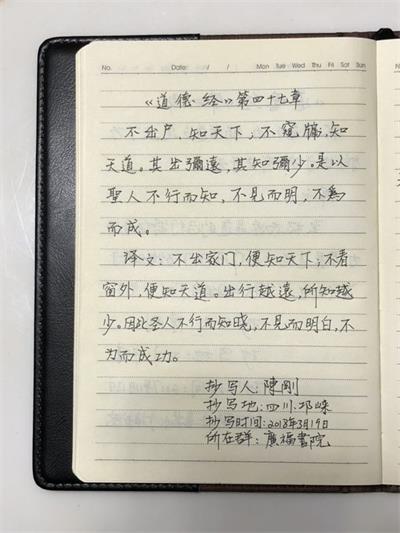 No. Date: / / Mon Tue Wed Thu Fri Sat Sun
《道德经》第四十七章
不出户,知天下;不窺牖,知
天道。其出彌遠,其知彌少。是以
聖人不行而知,不見而明,不為
而成。
译文:不出家门,便知天下;不看
窗外,便知天道。出行越遠,所知越
少。因此圣人不行而知晓,不見而明白,不
为而成功。
抄写人:陳刚
抄写地:四川.邛崃
抄写时间:2018年3月19日
所在群:廣福書院